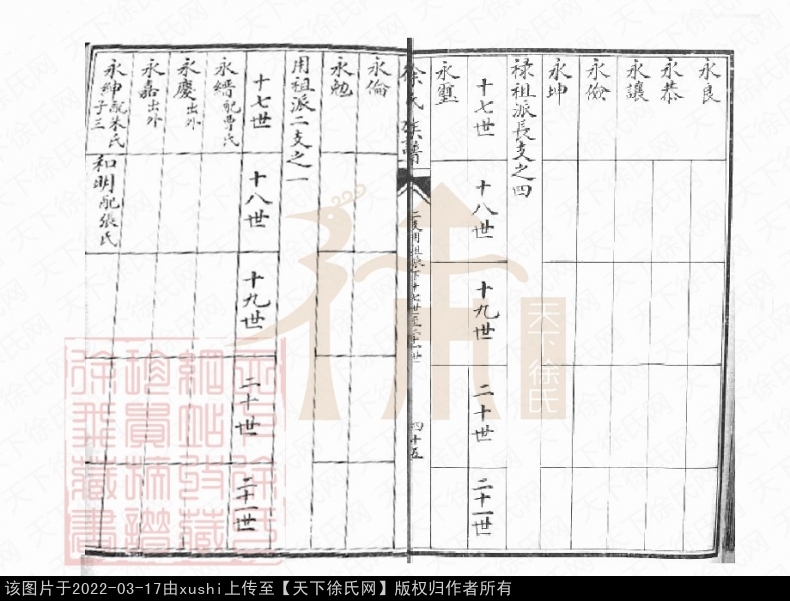 永良
永恭
永讓
永儉
永坤
祿祖派長支之四
十七世
十八世
十九世
二十世
二十一世
永璽
徐氏族譜
四十五
永倫
永勉
用祖派二支之一
十七世
十八世
十九世
二十世
二十一世
永縉配曹氏
永慶出外
永嘉出外
永紳配朱氏子三
和明配張氏
天下徐氏网
该图片于2022-03-17由xushi上传至【天下徐氏网】版权归作者所有